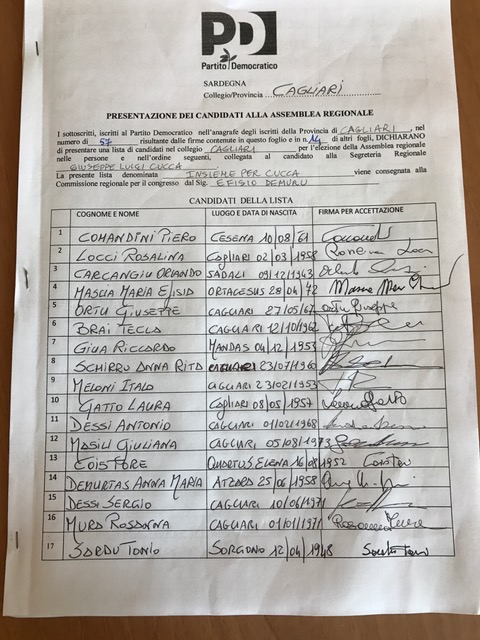 PD
Partito Democratico
SARDEGNA
Collegio/Provincia CAGLIARI
PRESENTAZIONE DEI CANDIDATI ALLA ASSEMBLEA REGIONALE
I sottoscritti, iscritti al Partito Democratico nell'anagrafe degli iscritti della Provincia di CAGLIARI, nel
numero di 57 risultante dalle firme contenute in questo foglio e in n. 14 di altri fogli, DICHIARANO
di presentare una lista di candidati nel collegio CAGLIARI per l'elezione della Assemblea regionale
nelle persone e nell'ordine seguenti, collegata al candidato alla Segreteria Regionale
GIUSEPPE LUIGI CUCCA
La presente lista denominata INSIEME PER CUCCA viene consegnata alla
Commissione regionale per il congresso dal Sig. EFISIO DEMURU
CANDIDATI DELLA LISTA
COGNOME E NOME LUOGO E DATA DI NASCITA FIRMA PER ACCETTAZIONE
1 COMANDINI PIERO CESENA 10/08/61
2 LOCCI ROSALINA Cagliari 02/03/1958
3 CARCANGIU ORLANDO SADALI 09/12/1943
4 MASCIA MARIA EFISIA ORTACESUS 28/04/72
5 ORTU GIUSEPPE CAGLIARI 27/05/67 Ortu Giuseppe
6 BRAI TECLA CAGLIARI 12/10/1962
7 GIUA RICCARDO MANDAS 04/12/1953
8 SCHIRRO ANNA RITA CAGLIARI 23/07/1960
9 MELONI ITALO CAGLIARI 23/02/1953
10 GATTO LAURA Cagliari 08/05/1957 Laura Gatto
11 DESSI ANTONIO CAGLIARI 01/02/1968
12 MASILI GIULIANA CAGLIARI 05/08/1973
13 COIS TORE QUARTUS.ELENA 16/08/1952 Cois Tore
14 DEMURTAS ANNA MARIA ATZARA 25/06/1958
15 DESSI SERGIO CAGLIARI 10/06/1971
16 MURA ROSANNA CAGLIARI 01/01/1971
17 SARDU TONIO SORGONO 12/04/1948 Sardu Tonio